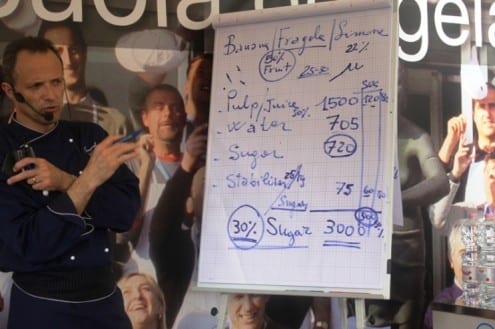 uola gela
Banana/Fragola/Limone
50% 22%
Fruit 25-30
500
Pulp/Juice 50% 1500
- Water 705
- Sugar 720
- Stabilizer 25/kg 75
/Sugars
30% Sugar 3000